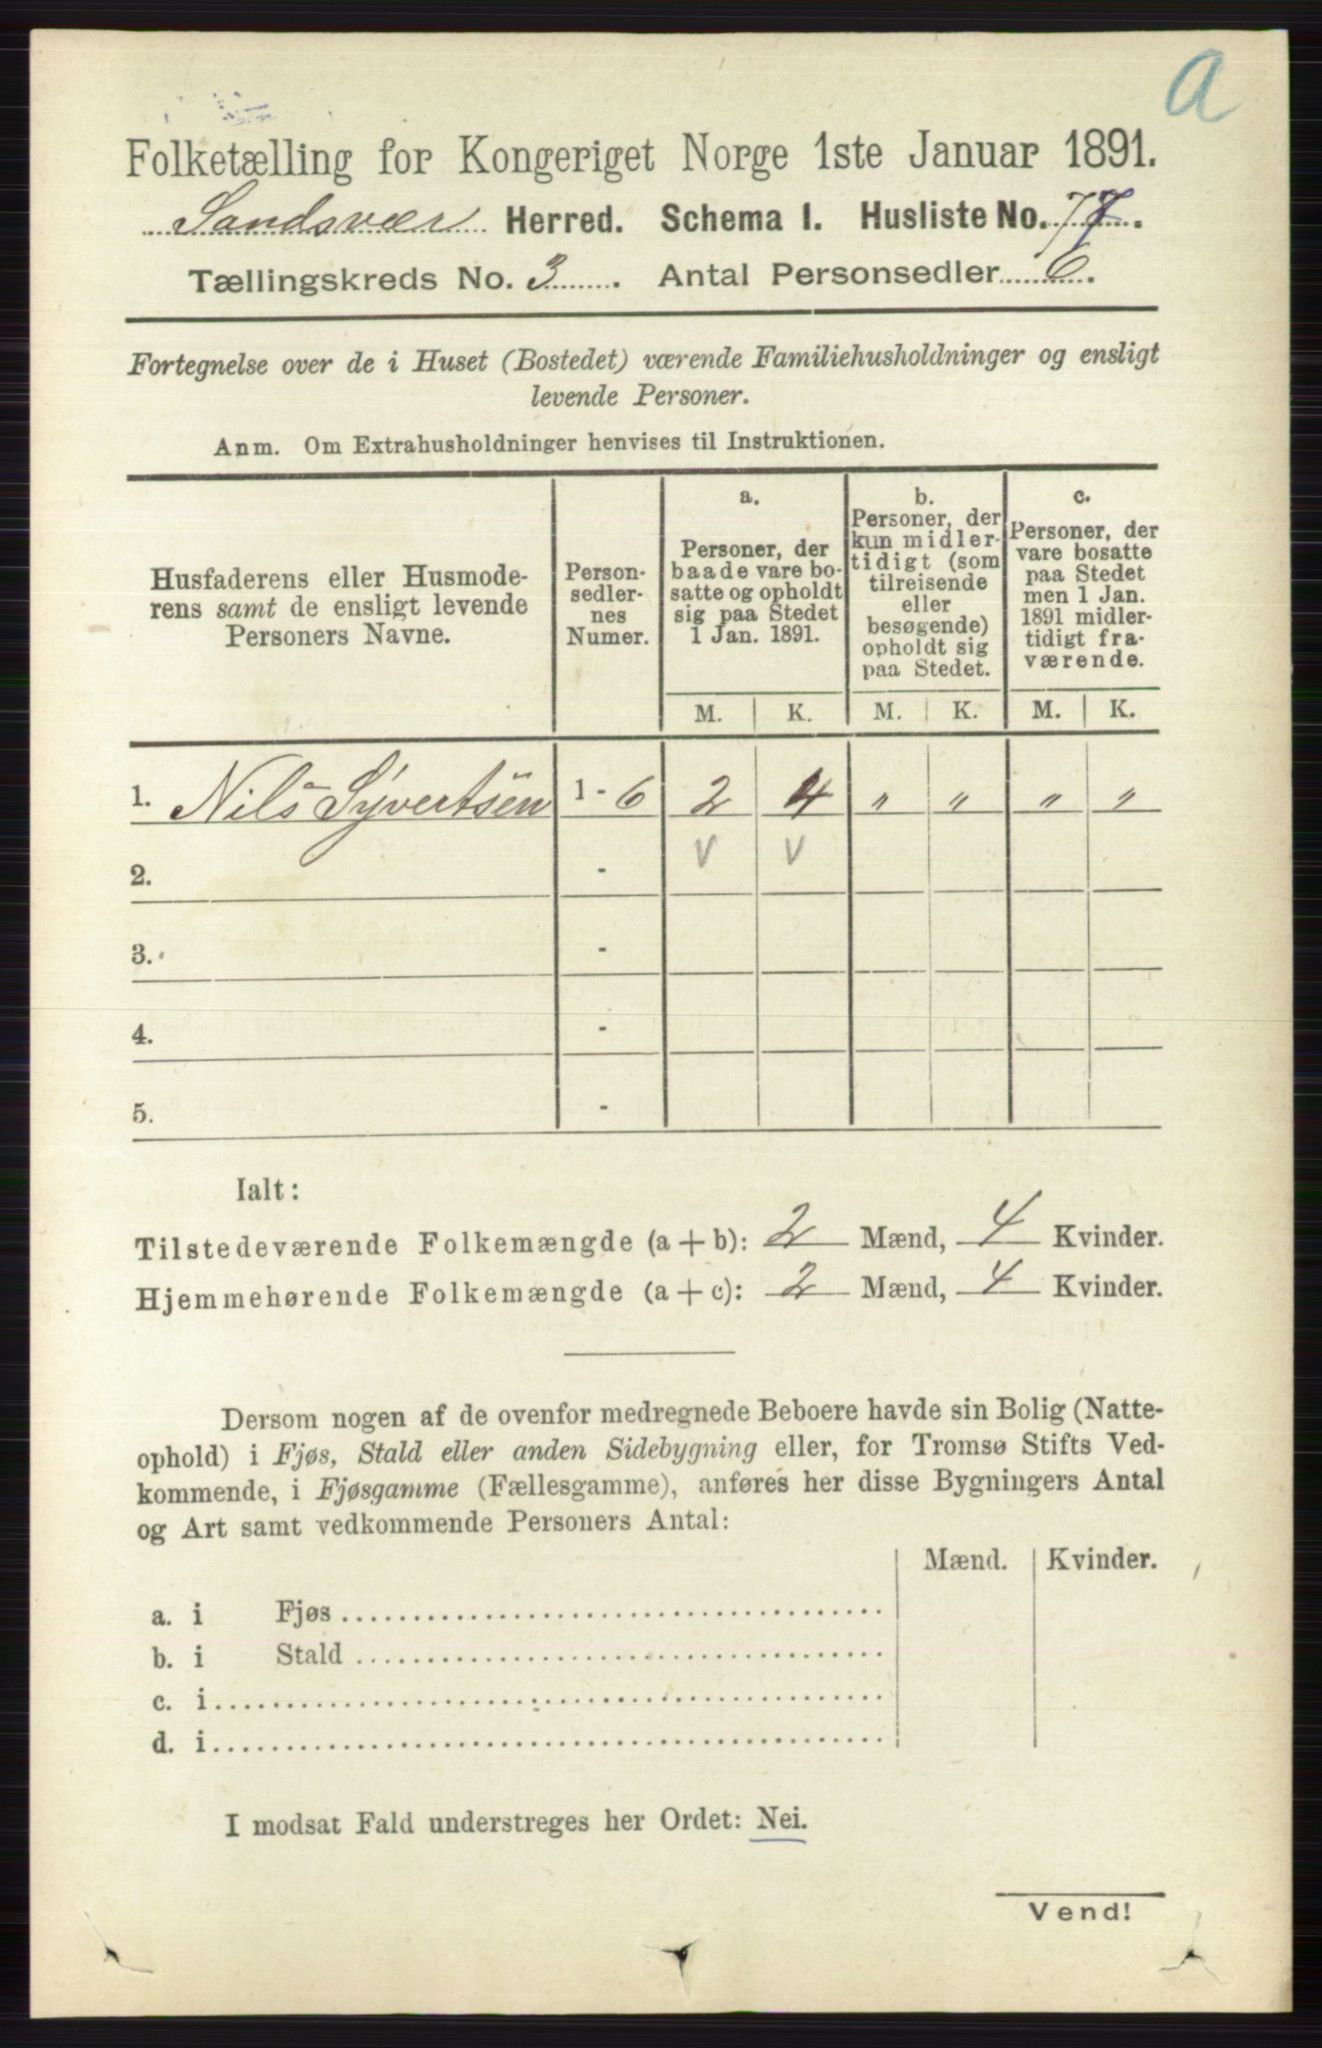 a
Folketælling for Kongeriget Norge 1ste Januar 1891.
Sandsvær Herred. Schema I. Husliste No. 77.
Tællingskreds No. 3. Antal Personsedler 6.
Fortegnelse over de i Huset (Bostedet) værende Familiehusholdninger og ensligt
levende Personer.
Anm. Om Extrahusholdninger henvises til Instruktionen.
Husfaderens eller Husmode-
rens samt de ensligt levende
Personers Navne.
Person-
sedler-
nes
Numer.
a.
Personer, der
baade vare bo-
satte og opholdt
sig paa Stedet
1 Jan. 1891.
b.
Personer, der
kun midler-
tidigt (som
tilreisende
eller
besøgende)
opholdt sig
paa Stedet.
c.
Personer, der
vare bosatte
paa Stedet
men 1 Jan.
1891 midler-
tidigt fra-
værende.
M. K. M. K. M. K.
1. Nils Syvertsen 1 - 6 2 4 " " " "
2. - V V
3. -
4. -
5. -
Ialt:
Tilstedeværende Folkemængde (a + b): 2 Mænd, 4 Kvinder.
Hjemmehørende Folkemængde (a + c): 2 Mænd, 4 Kvinder.
Dersom nogen af de ovenfor medregnede Beboere havde sin Bolig (Natte-
ophold) i Fjøs, Stald eller anden Sidebygning eller, for Tromsø Stifts Ved-
kommende, i Fjøsgamme (Fællesgamme), anføres her disse Bygningers Antal
og Art samt vedkommende Personers Antal:
Mænd. Kvinder.
a. i Fjøs
b. i Stald
c. i
d. i
I modsat Fald understreges her Ordet: Nei.
Vend!